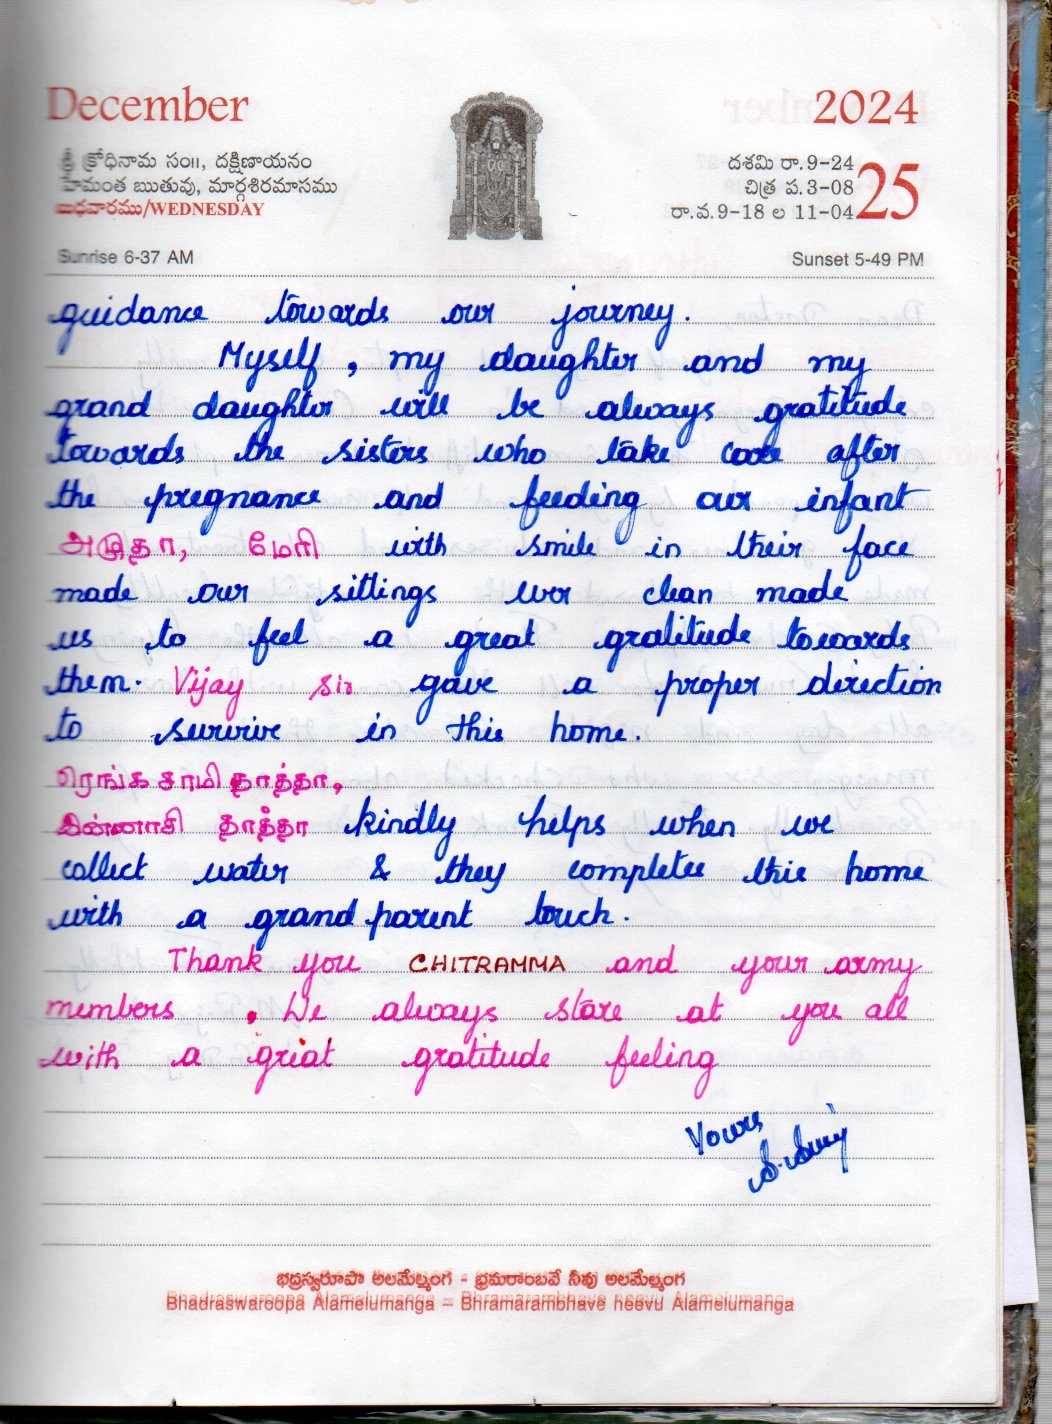 December 2024
శ్రీ క్రోధినామ సం॥, దక్షిణాయనం దశమి రా.9-24
హేమంత ఋతువు, మార్గశిరమాసము చిత్ర ప.3-08 25
బుధవారము/WEDNESDAY రా.వ.9-18 ల 11-04
Sunrise 6-37 AM Sunset 5-49 PM
guidance towards our journey.
Myself, my daughter and my
grand daughter will be always gratitude
towards the sisters who take care after
the pregnance and feeding our infant
அமுதா, மேரி with smile in their face
made our sittings wer clean made
us to feel a great gratitude towards
them. Vijay sir gave a proper direction
to survive in this home.
ரெங்கசாமி தாத்தா,
இன்னாசி தாத்தா kindly helps when we
collect water & they completes this home
with a grand parent touch.
Thank you CHITRAMMA and your army
members, We always stare at you all
with a great gratitude feeling
Yours
భద్రస్వరూపా అలమేల్మంగ - భ్రమరాంబవే నీవు అలమేల్మంగ
Bhadraswaroopa Alamelumanga - Bhramarambhave neevu Alamelumanga